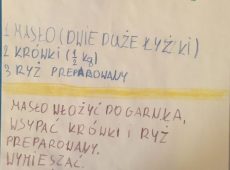 1 MASŁO (DWIE DUŻE ŁYŻKI)
2 KRÓWKI (1/2 kg)
3 RYŻ PREPAROWANY
MASŁO WŁOŻYĆ DO GARNKA,
WSYPAĆ KRÓWKI I RYŻ
PREPAROWANY.
WYMIESZAĆ.